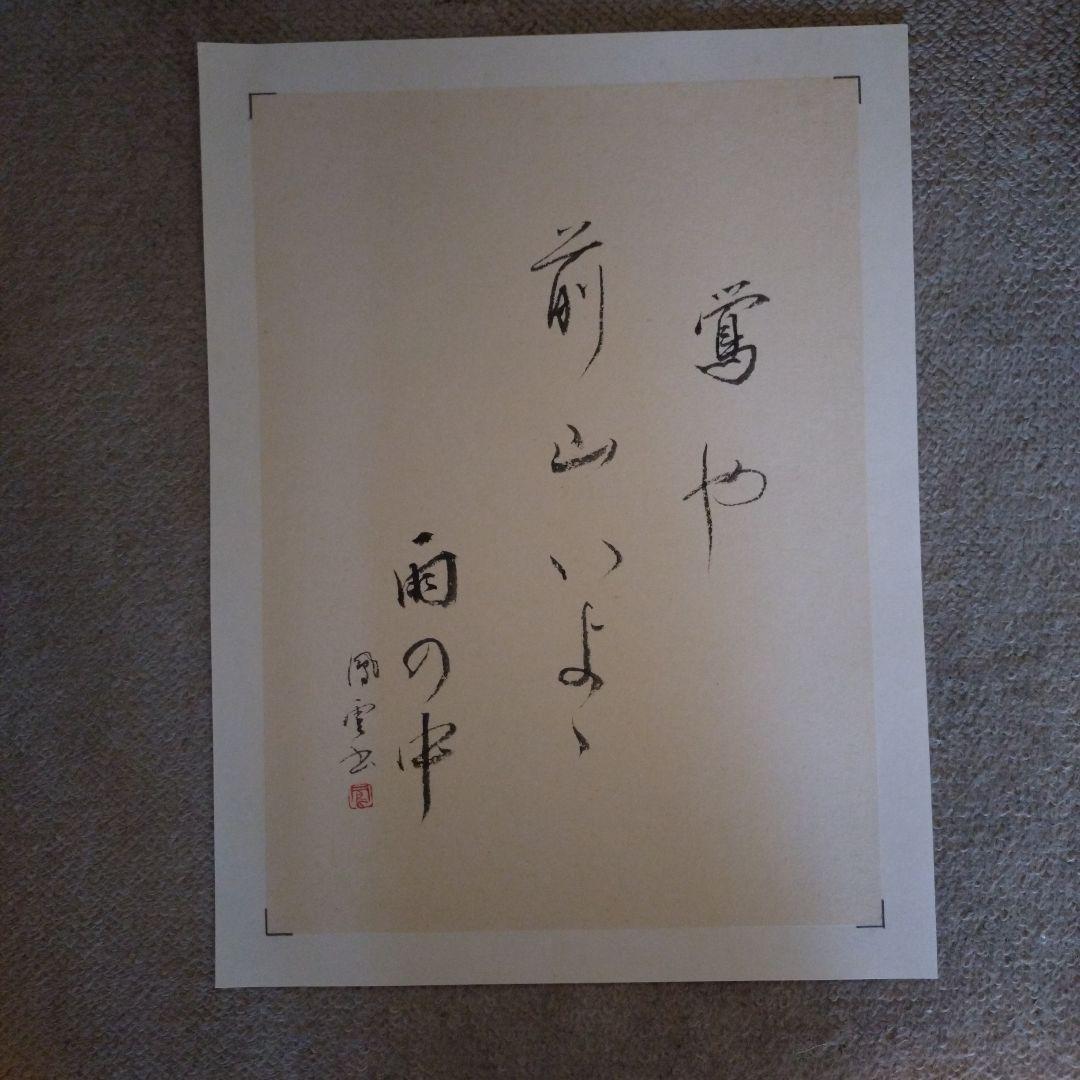 鶯や
前山いよゝ
雨の中
鳳雲書